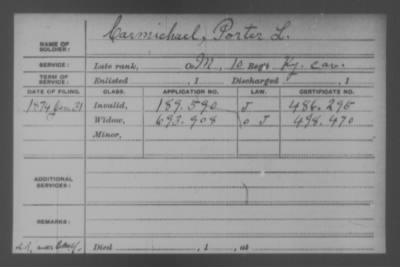 NAME OF SOLDIER: Carmichael, Porter L.
SERVICE: Late rank, Co. M, 10 Reg't Ky. Cav.
TERM OF SERVICE: Enlisted , 1 Discharged , 1
DATE OF FILING. CLASS. APPLICATION NO. LAW. CERTIFICATE NO.
Invalid, 189.590 J 486.295
Widow, 693.908 J 498.470
Minor,
ADDITIONAL SERVICES:
REMARKS:
Died , 1 , at